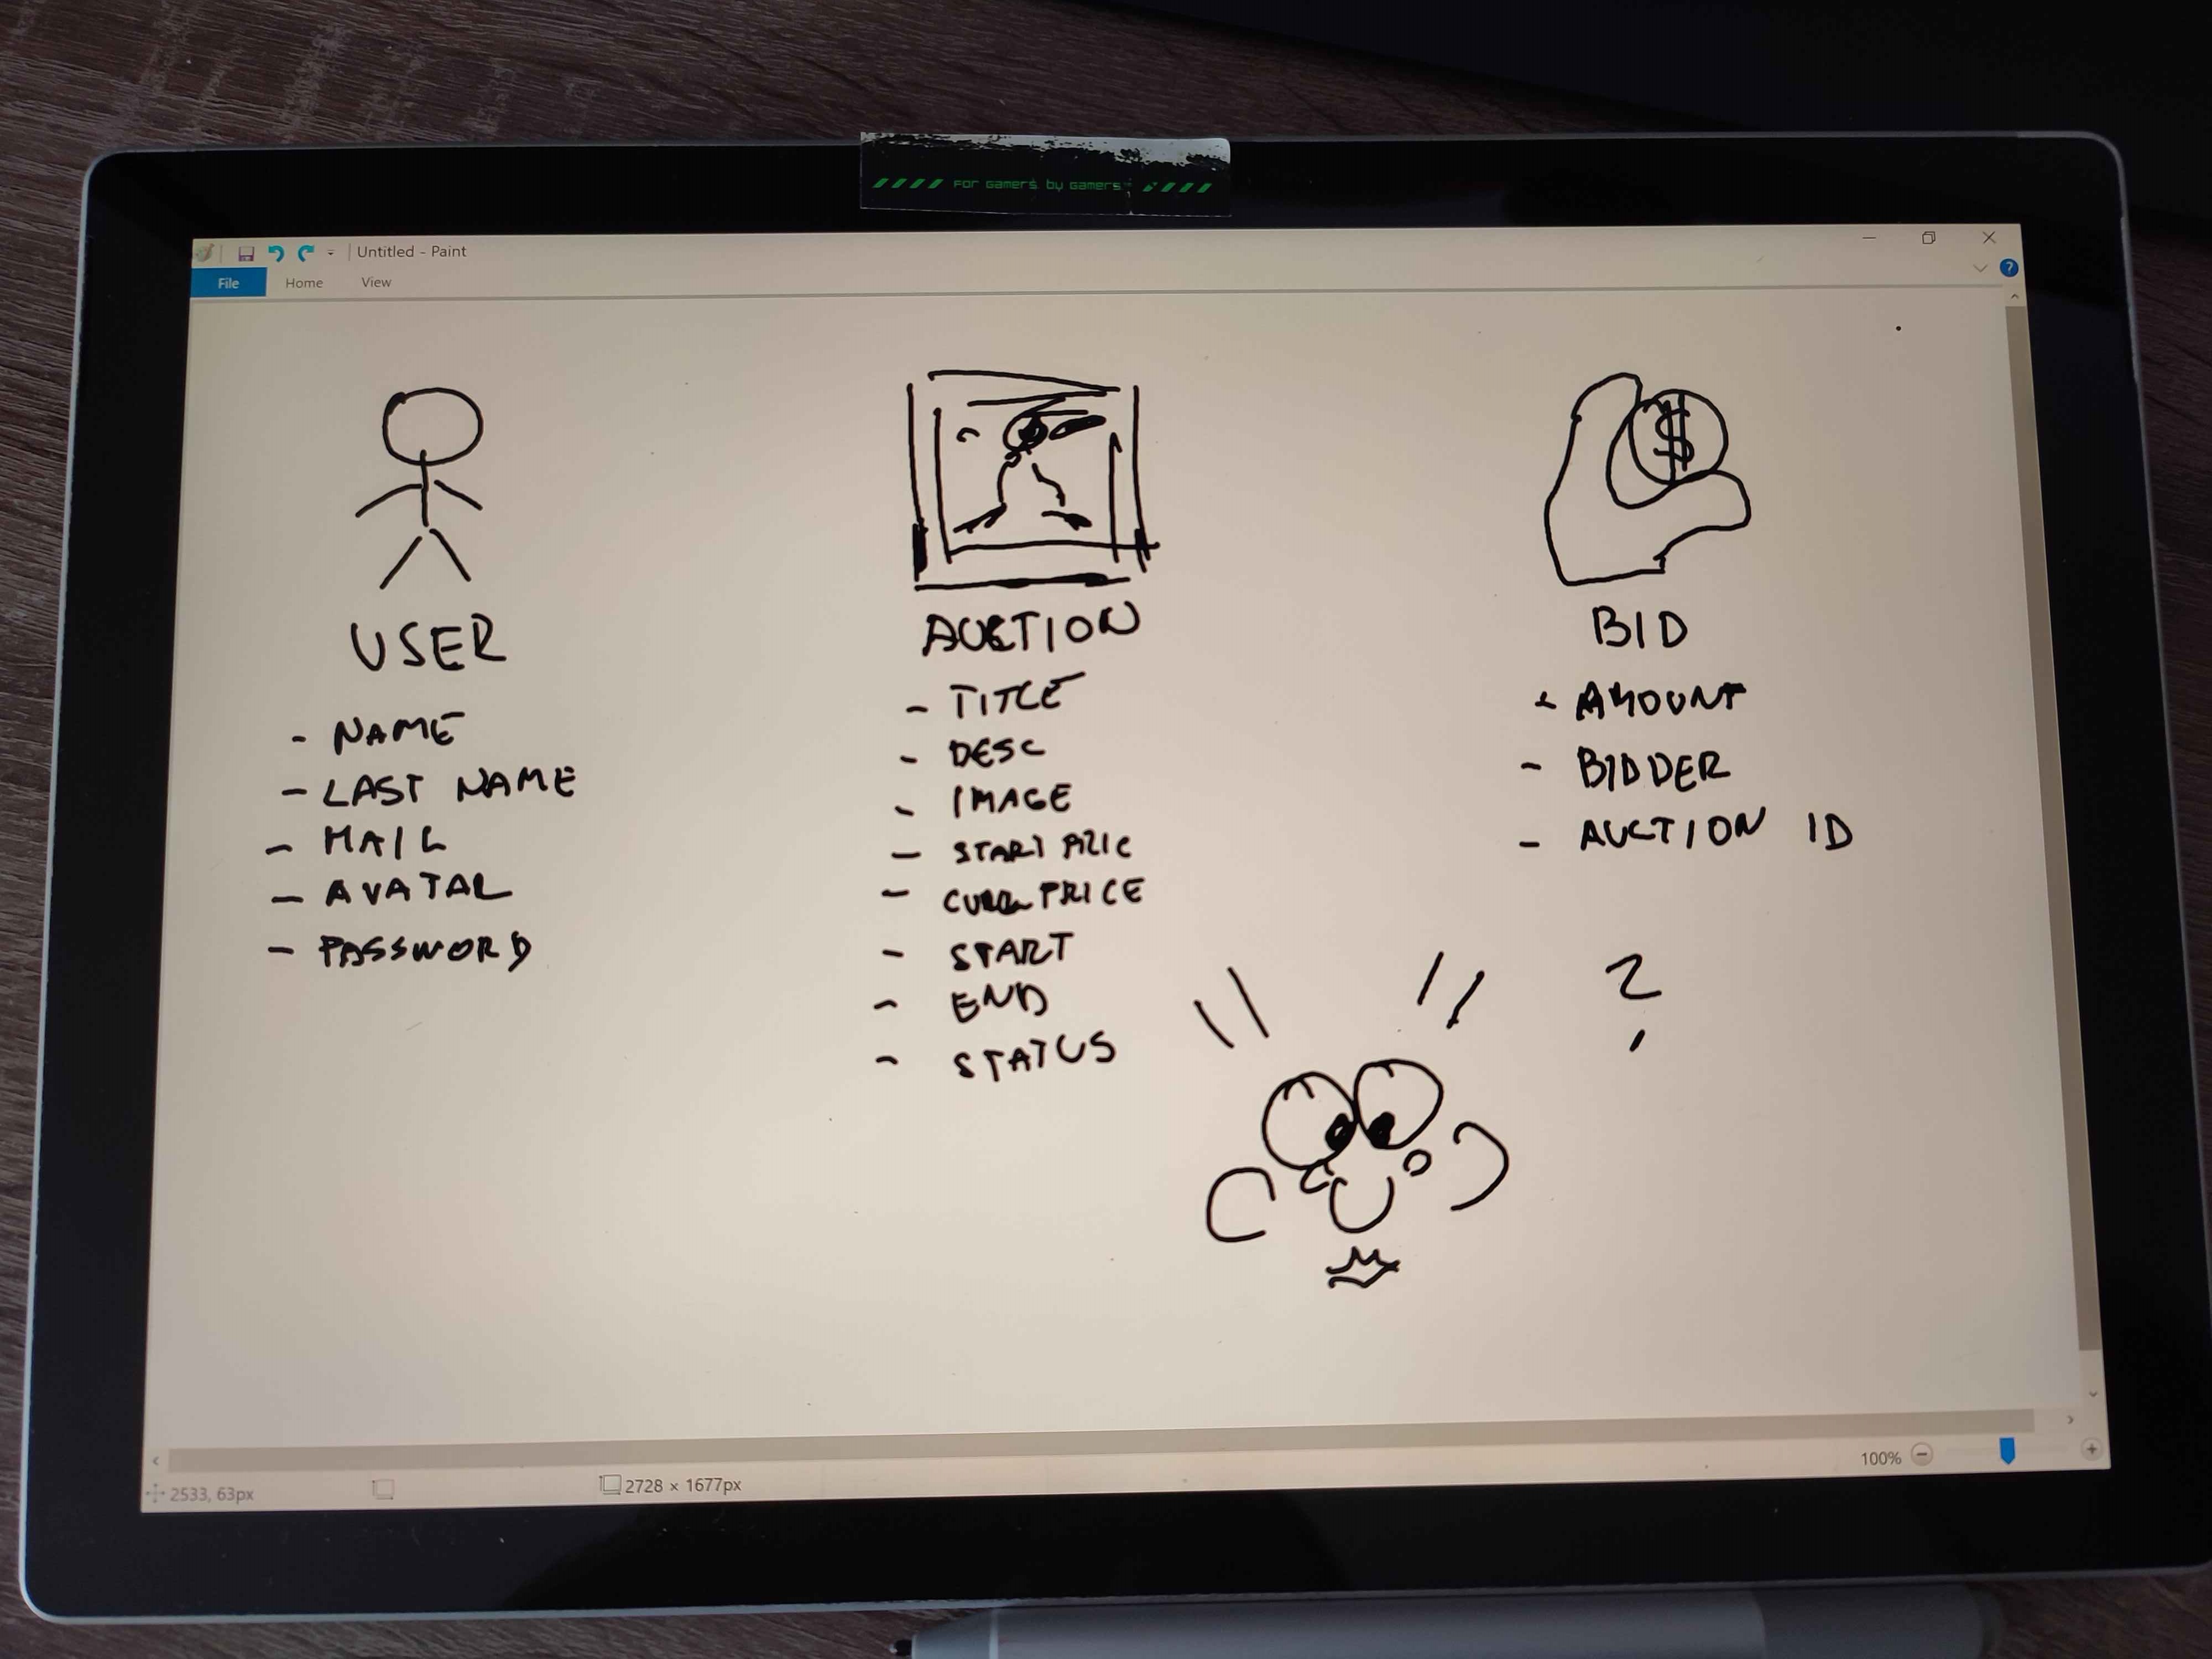 FOR GAMERS. BY GAMERS.™
Untitled - Paint
File Home View
USER
- NAME
- LAST NAME
- MAIL
- AVATAR
- PASSWORD
AUCTION
- TITLE
- DESC
- IMAGE
- START PRIC
- CURR PRICE
- START
- END
- STATUS
$
BID
- AMOUNT
- BIDDER
- AUCTION ID
?
100%
2533, 63px
2728 × 1677px